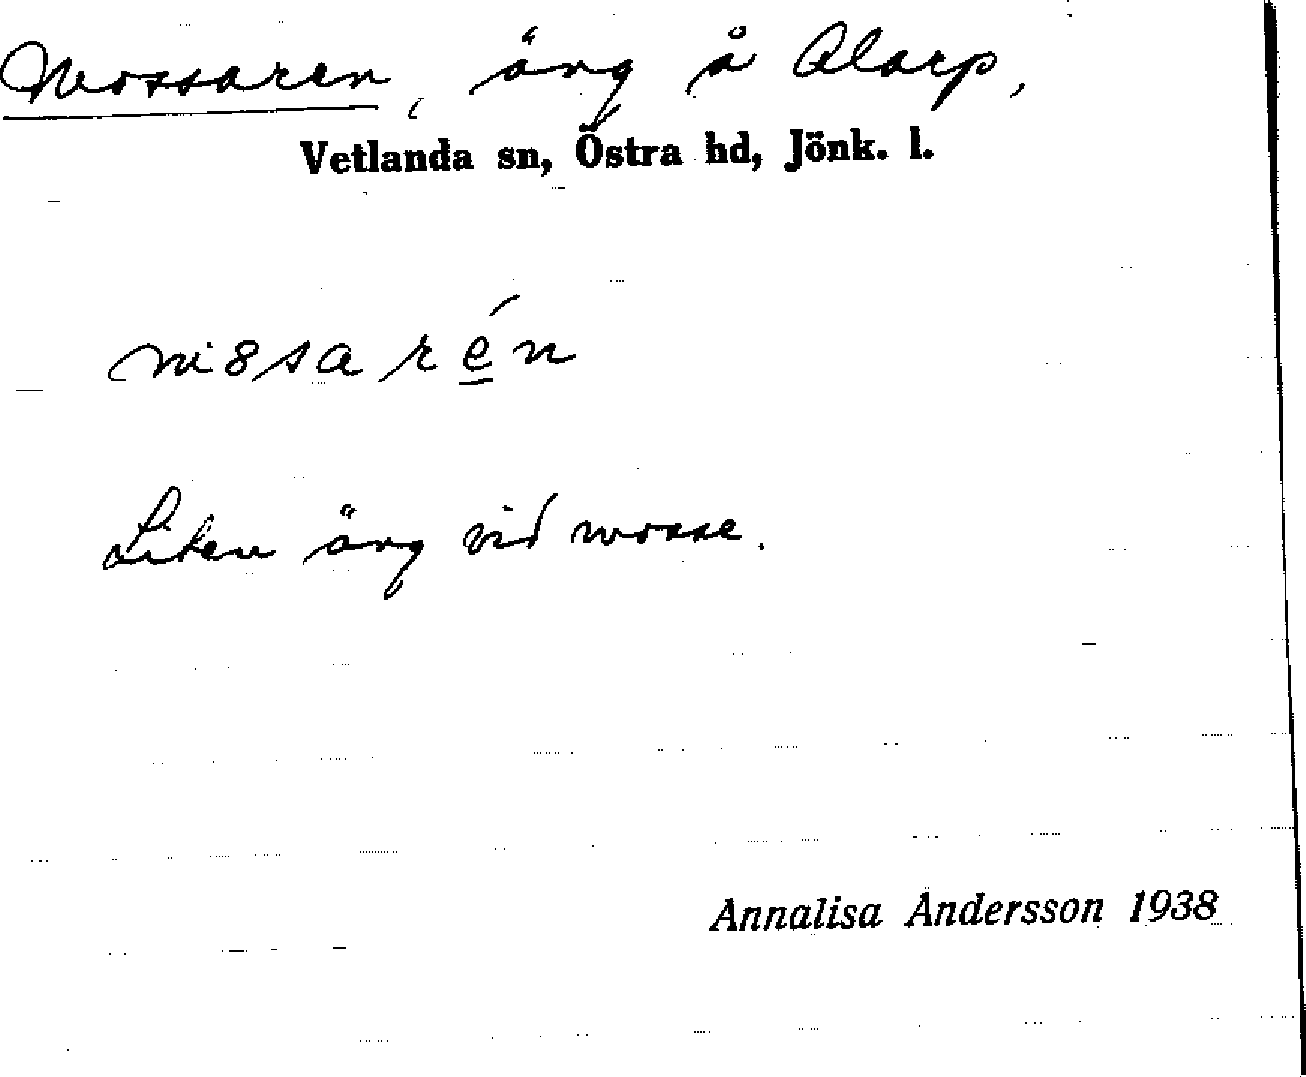 Mossaren, äng å Alarp,
Vetlanda sn, Östra hd, Jönk. l.
Liten äng vid mosse.
Annalisa Andersson 1938